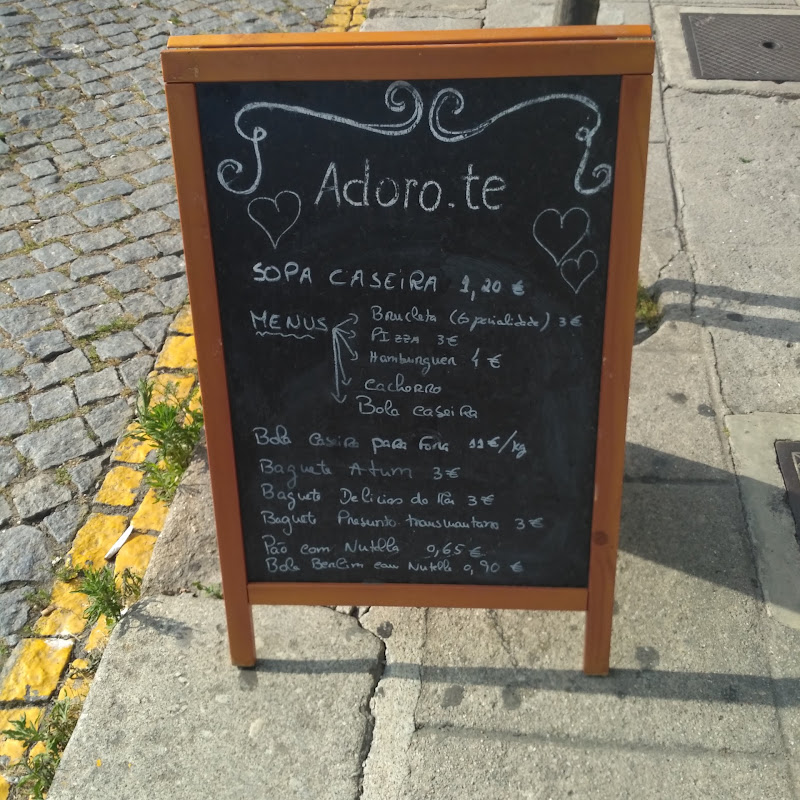 Adoro.te
SOPA CASEIRA 1,20 €
MENUS Brucleta (Especialidade) 3€
PIZZA 3€
Hamburguer 4€
cachorro
Bola caseira
Bola Caseira para Fora 11€/Kg
Baguete Atum 3€
Baguete Delicias do Mar 3€
Baguete Presunto transmontano 3€
Pão com Nutella 0,65 €
Bola Berlim com Nutella 0,90 €